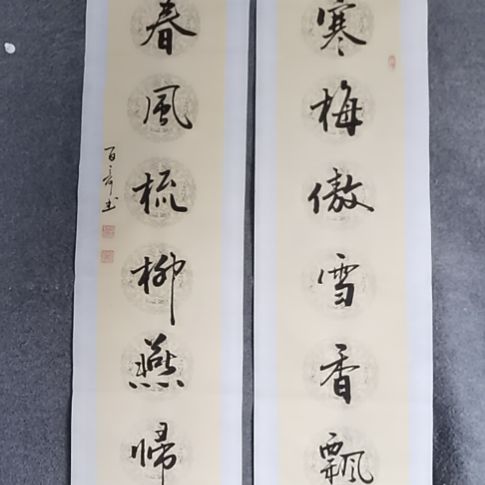 寒梅傲雪香飄
春風梳柳燕歸